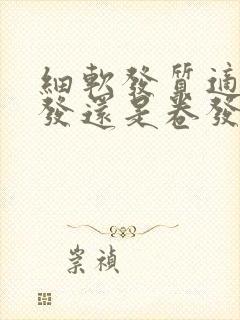 細軟發質適
發還是卷發
崇禎